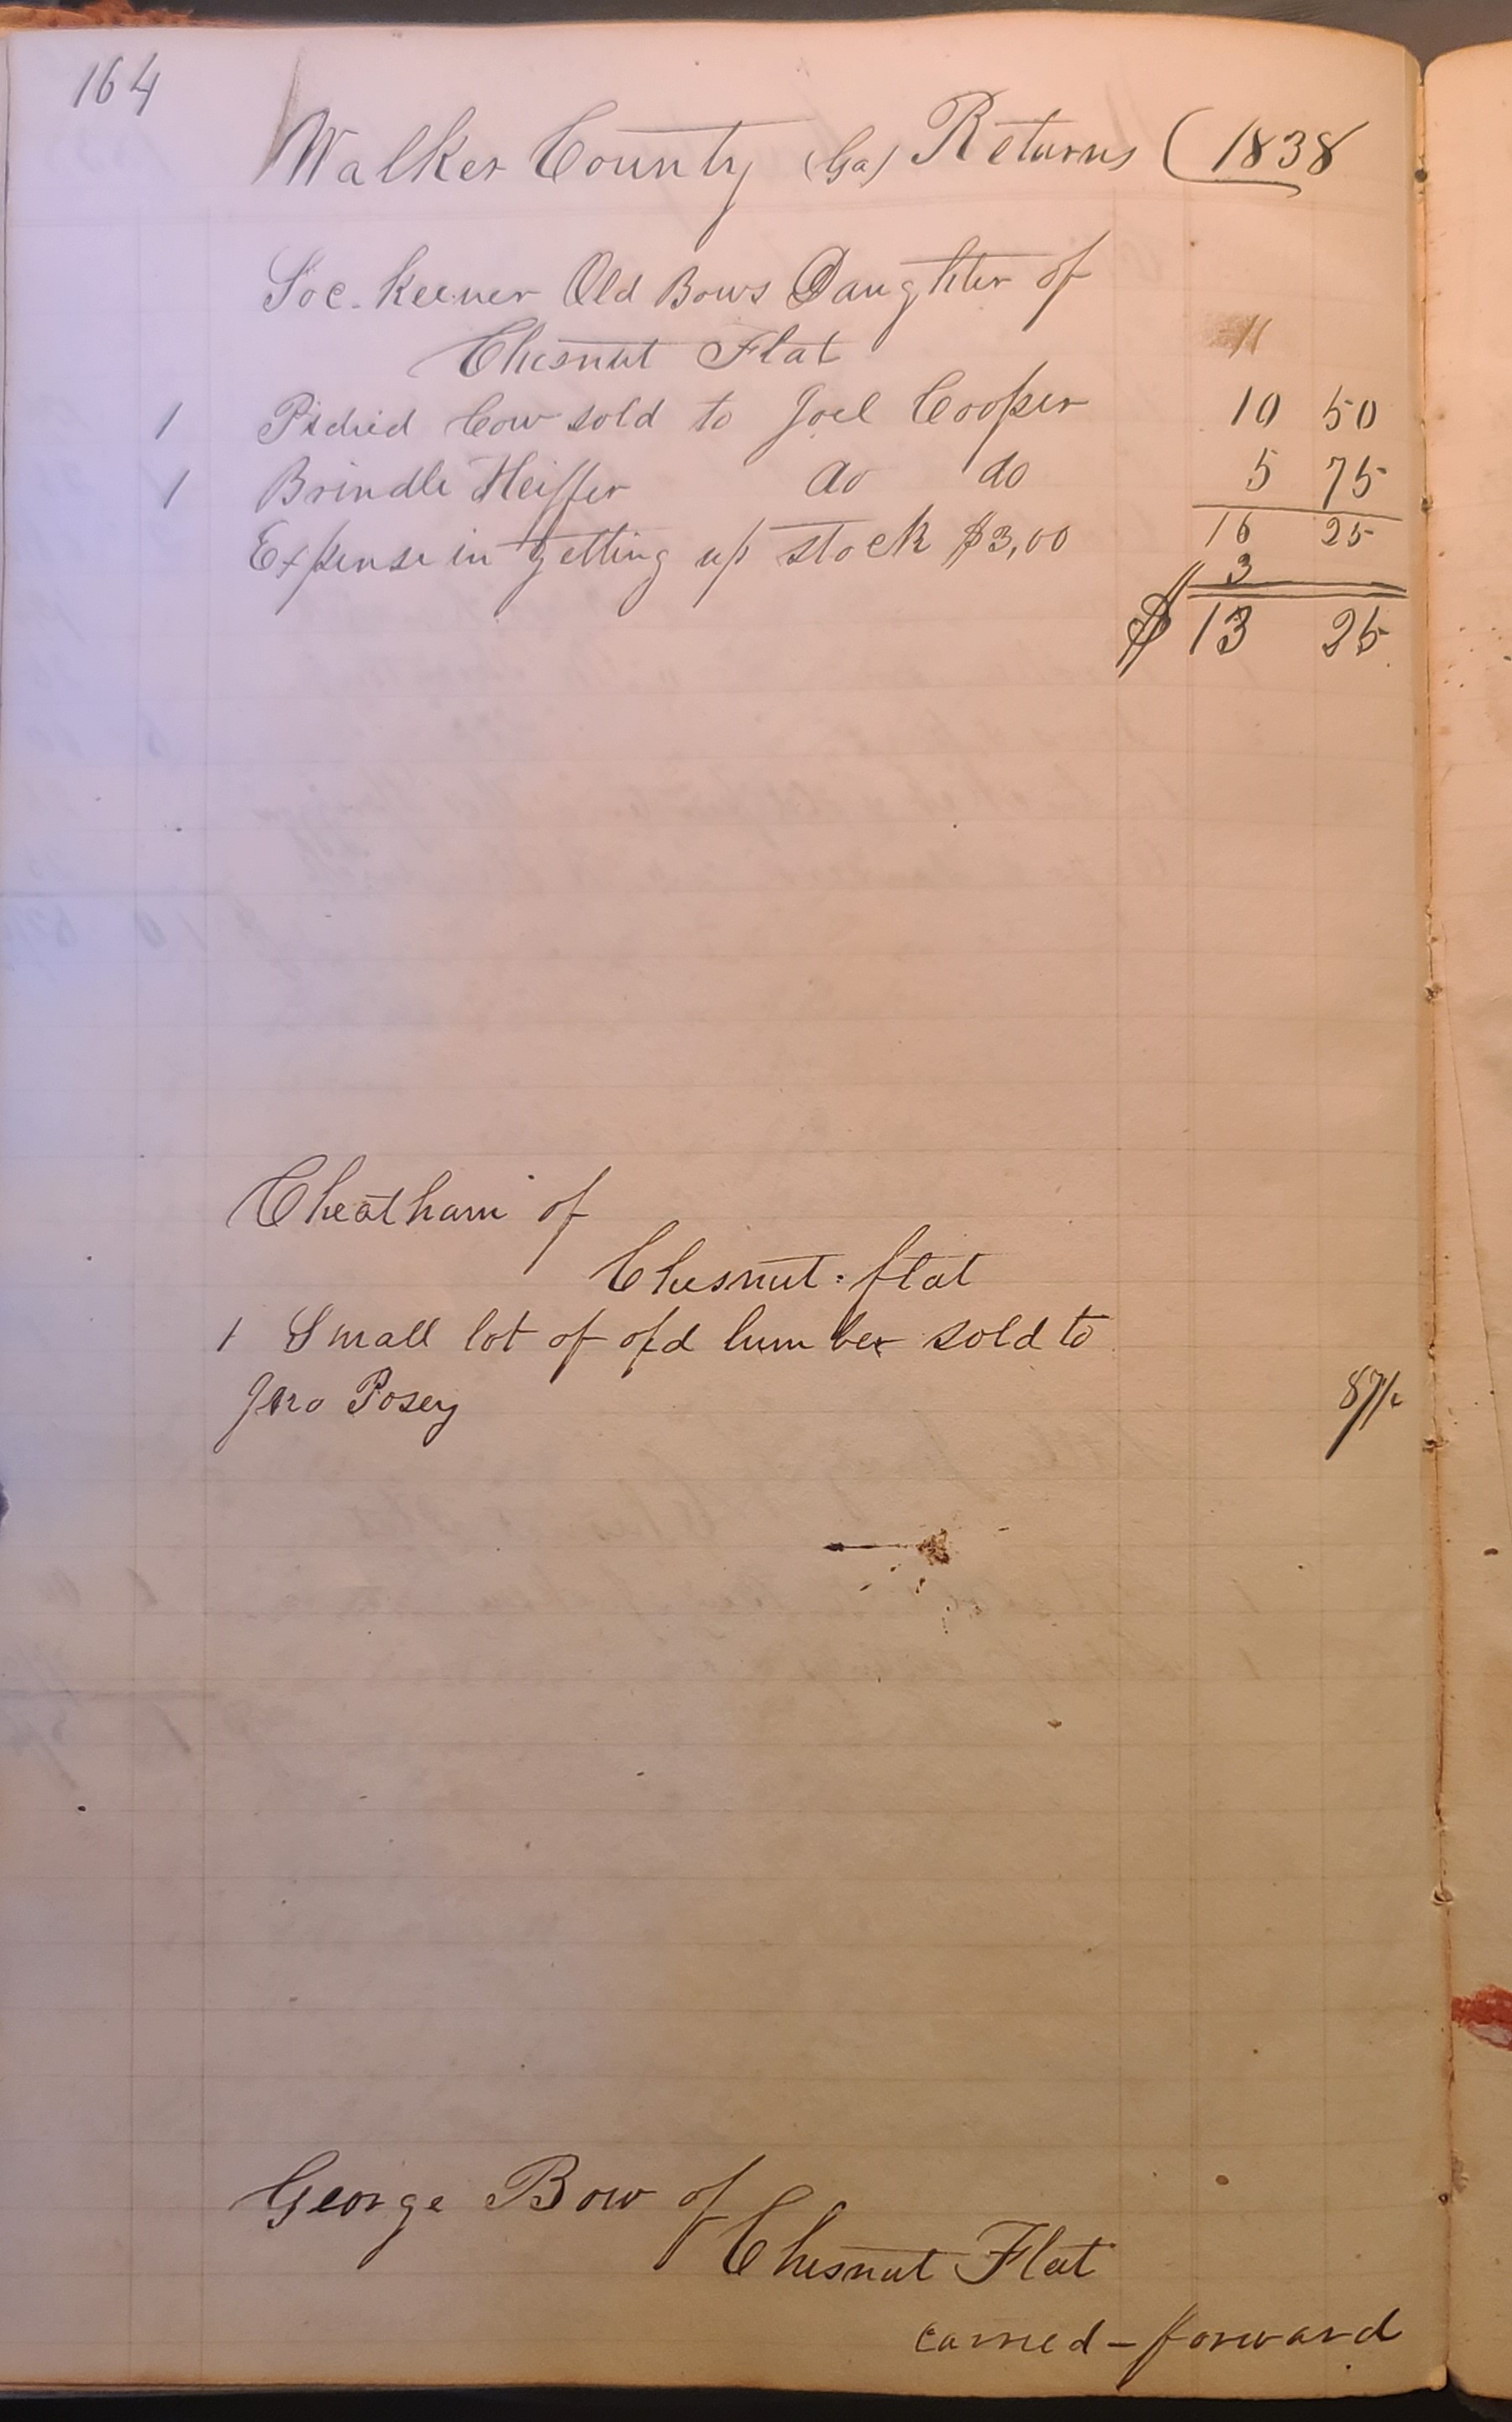 164
Walker County (Ga) Returns (1838
Soc. keener Old Bows Daughter of
Chesnut Flat
1 Pidied Cow sold to Joel Cooper 10 50
1 Brindle Heiffer do do 5 75
16 25
Expense in getting up stock $3,00 3
$ 13 25
Cheatham of
Chesnut = flat
1 Small lot of old lumber sold to
Jno Posey 87½
George Bow of
Chesnut Flat
carried - forward